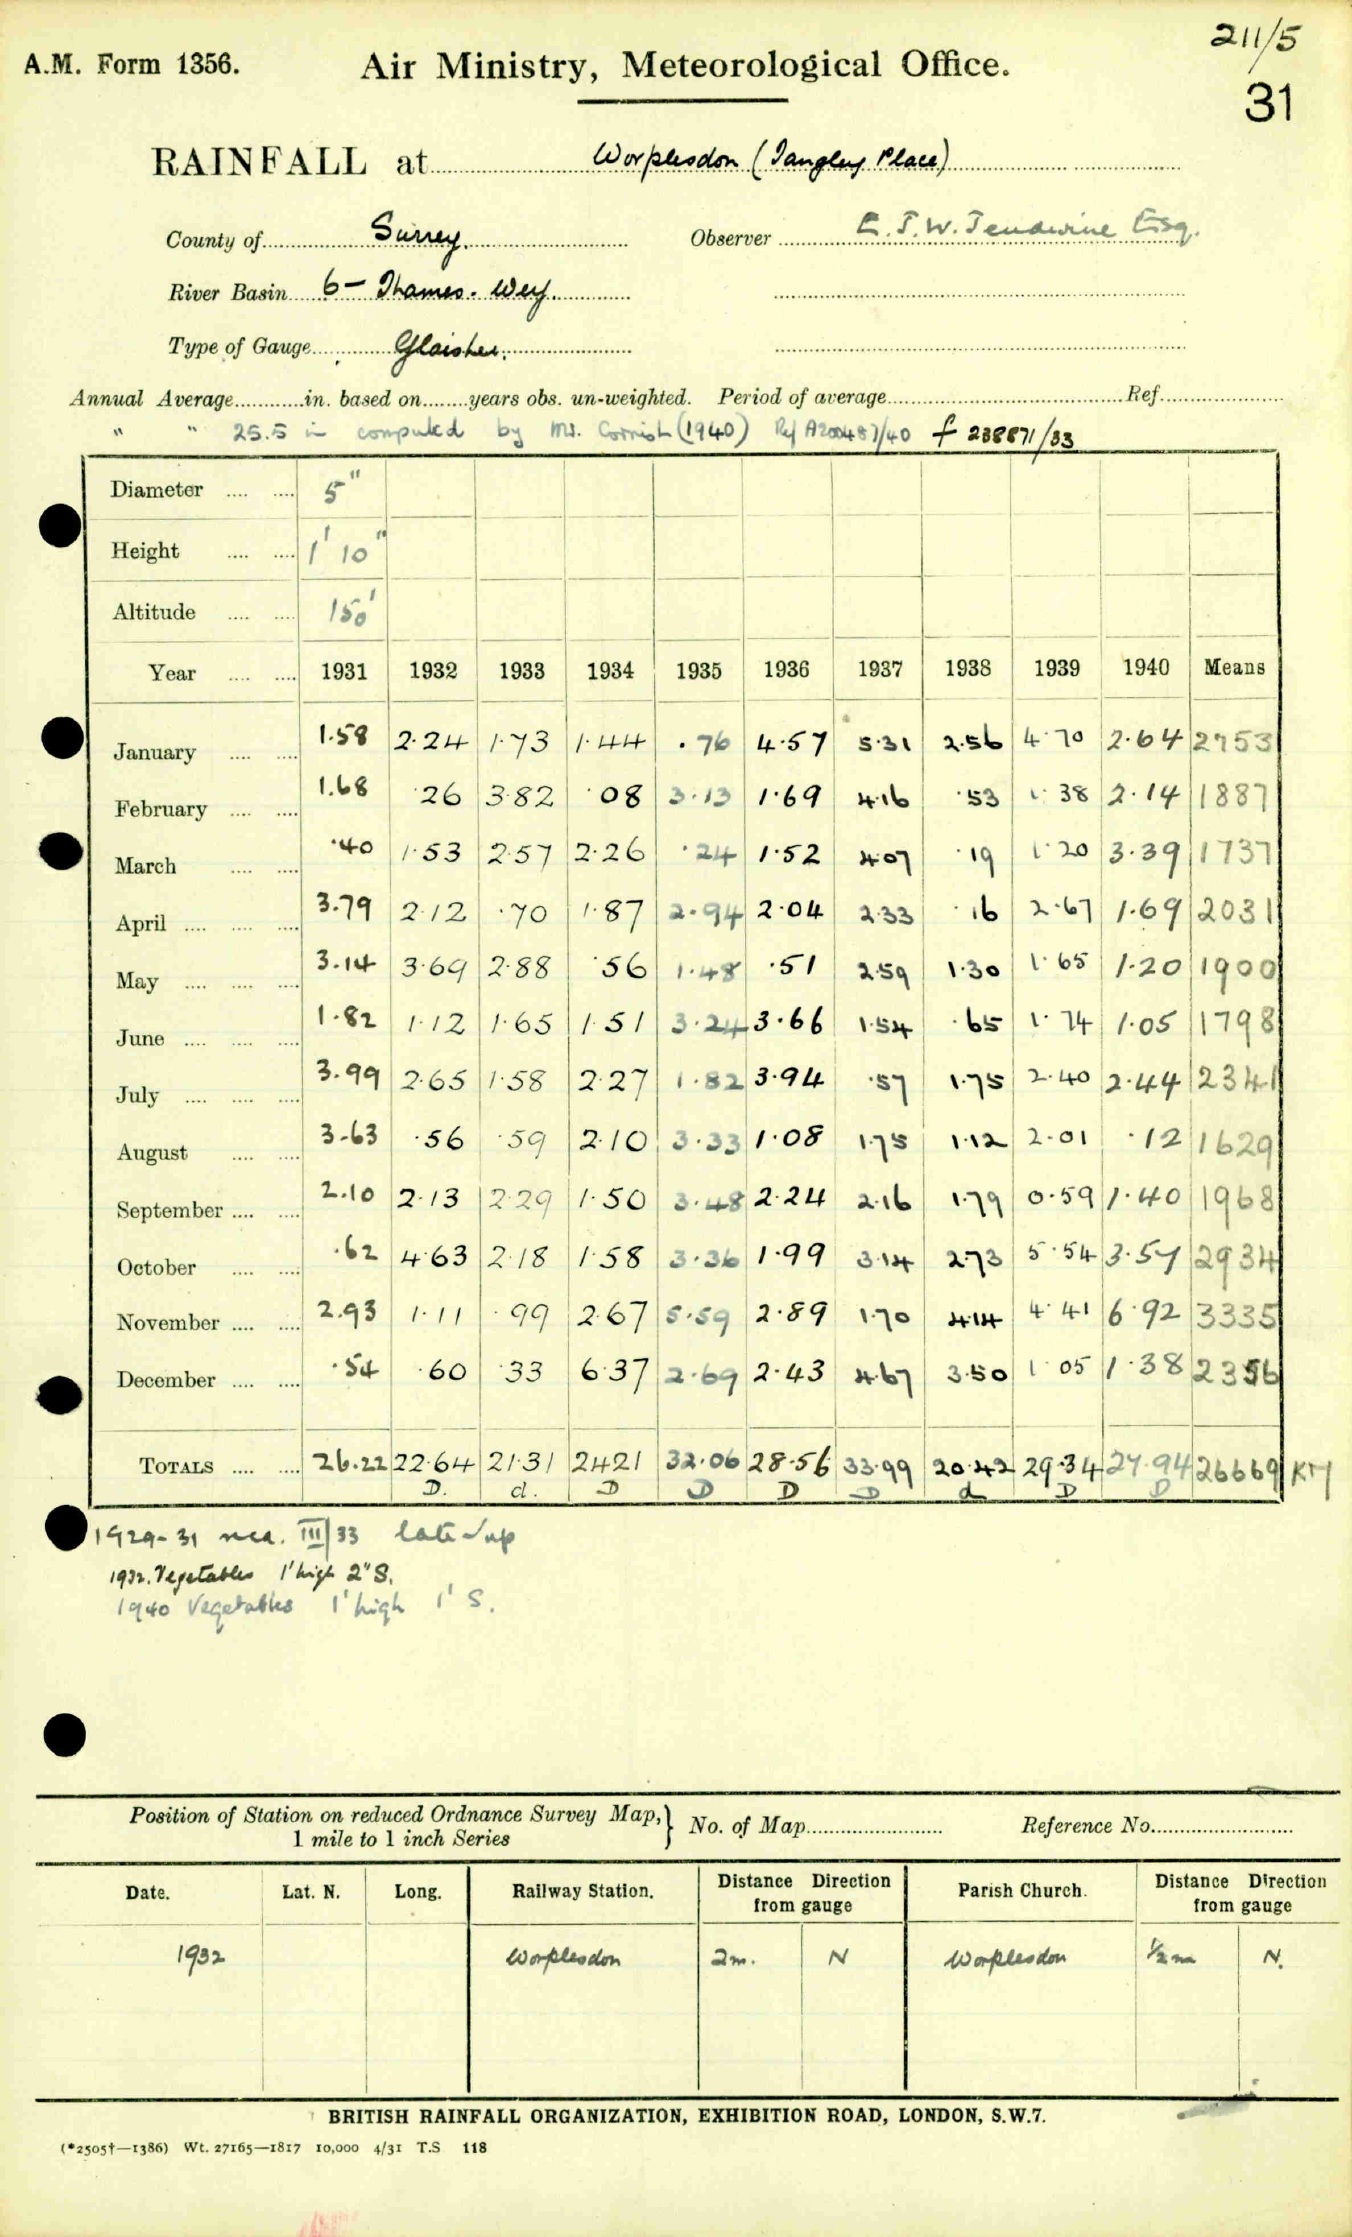 211/5
A.M. Form 1356. Air Ministry, Meteorological Office.
31
RAINFALL at Worplesdon (Tangley Place)
County of Surrey. Observer E. J. W. Esq.
River Basin 6 - Thames. Wey.
Type of Gauge Glaisher.
Annual Average in. based on years obs. un-weighted. Period of average Ref.
" " 25.5 in computed by Mr. Cornish (1940) Ref A200487/40 f 238871/33
Diameter 5"
Height 1' 10"
Altitude 150'
Year 1931 1932 1933 1934 1935 1936 1937 1938 1939 1940 Means
January 1.58 2.24 1.73 1.44 .76 4.57 5.31 2.56 4.70 2.64 2753
February 1.68 .26 3.82 .08 3.13 1.69 4.16 .53 1.38 2.14 1887
March .40 1.53 2.57 2.26 .24 1.52 4.07 .19 1.20 3.39 1737
April 3.79 2.12 .70 1.87 2.94 2.04 2.33 .16 2.67 1.69 2031
May 3.14 3.69 2.88 .56 1.48 .51 2.59 1.30 1.65 1.20 1900
June 1.82 1.12 1.65 1.51 3.24 3.66 1.54 .65 1.74 1.05 1798
July 3.99 2.65 1.58 2.27 1.82 3.94 .57 1.75 2.40 2.44 2341
August 3.63 .56 .59 2.10 3.33 1.08 1.75 1.12 2.01 .12 1629
September 2.10 2.13 2.29 1.50 3.48 2.24 2.16 1.79 0.59 1.40 1968
October .62 4.63 2.18 1.58 3.36 1.99 3.14 2.73 5.54 3.57 2934
November 2.93 1.11 .99 2.67 5.59 2.89 1.70 4.14 4.41 6.92 3335
December .54 .60 .33 6.37 2.69 2.43 4.67 3.50 1.05 1.38 2356
TOTALS 26.22 22.64 21.31 24.21 32.06 28.56 33.99 20.42 29.34 27.94 26669 KM
D. d. D D D D d D D
1929-31 III/33 late
1932. Vegetables 1' high 2" S.
1940 Vegetables 1' high 1' S.
Position of Station on reduced Ordnance Survey Map, } No. of Map Reference No.
1 mile to 1 inch Series
Date. Lat. N. Long. Railway Station. Distance from gauge Direction Parish Church. Distance from gauge Direction
1932 Worplesdon 2 m. N Worplesdon 1/2 m N.
BRITISH RAINFALL ORGANIZATION, EXHIBITION ROAD, LONDON, S.W.7.
(*2505†—1386) Wt. 27165—1817 10,000 4/31 T.S 118